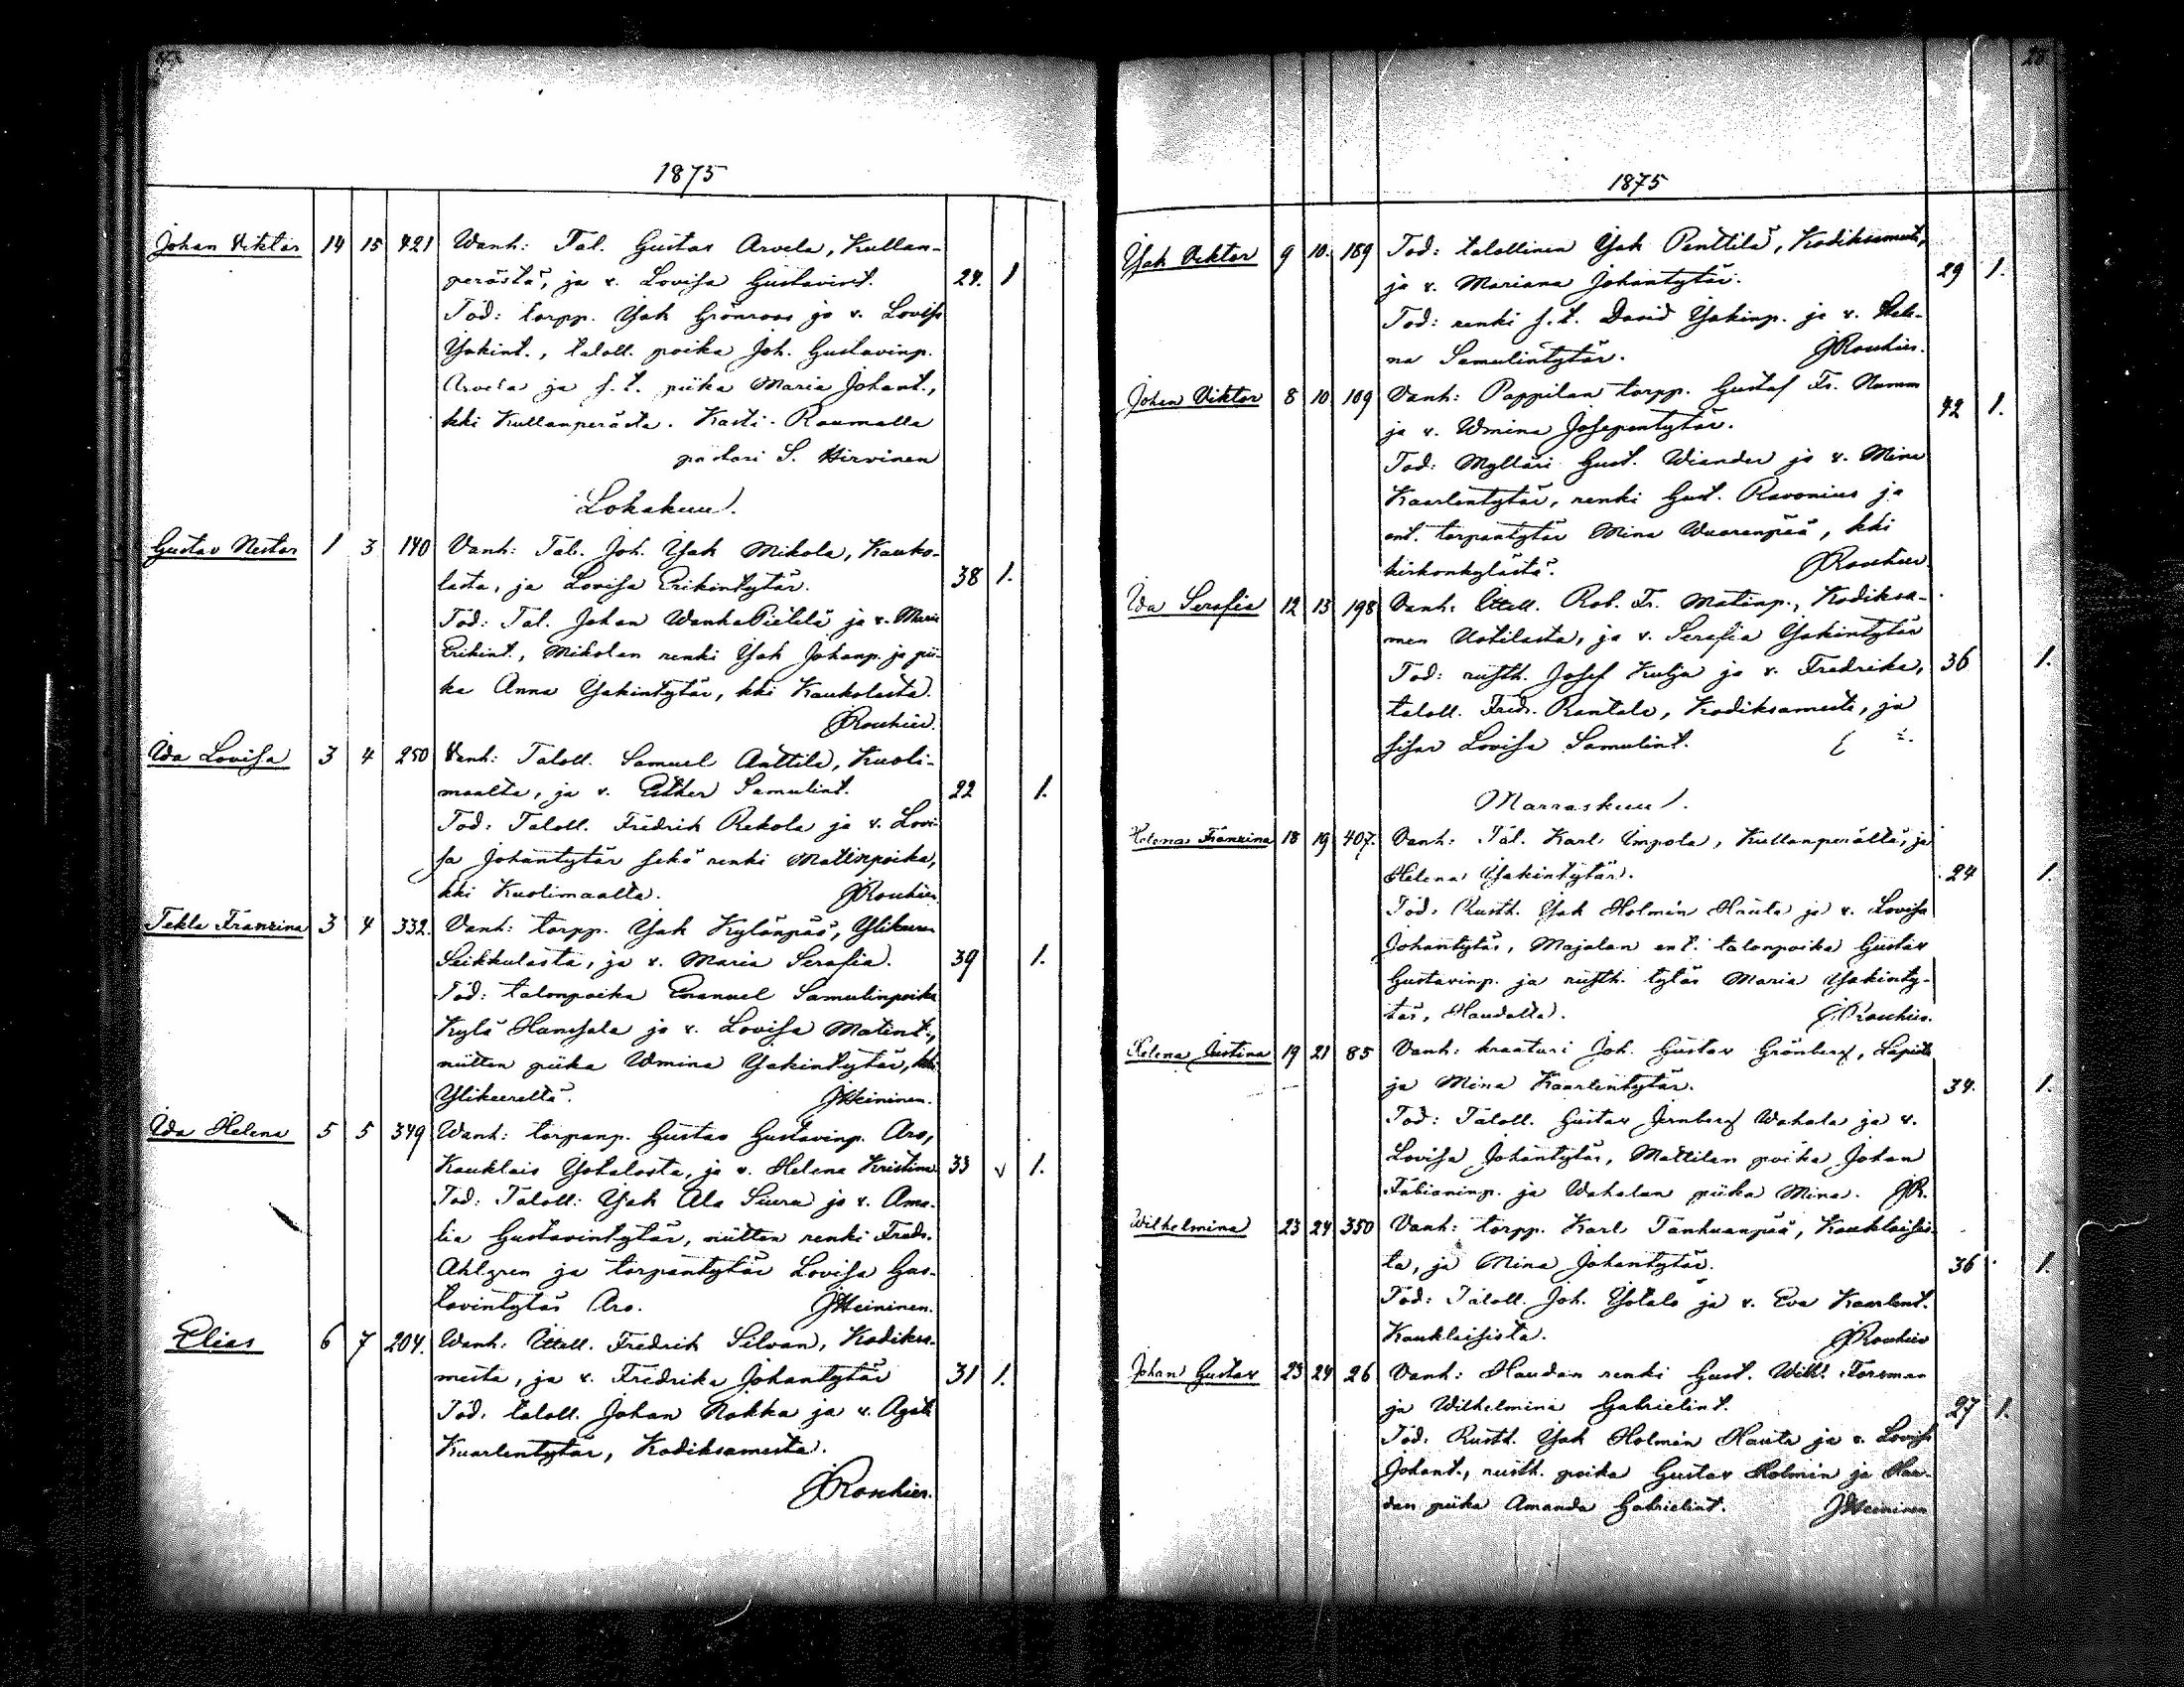 1875
Johan Viktor 14 15 421 Wanh: Tal. Gustav Arvela, Kullan-
perästä, ja v. Lovisa Gustavint. 24. 1
Tod: torpp. Isak Grönroos ja v. Lovisa
Isakint., taloll. poika Joh. Gustavinp.
Arvela ja s.t. piika Maria Johant.,
kki Kullanperästä. Kasti. Raumalla
pastori S. Hirvinen
Lokakuu.
Gustav Nestor 1 3 140 Vanh: Tal. Joh. Isak Mikola, Kauko-
lasta, ja Lovisa Erikintytär. 38 1.
Tod: Tal. Johan WanhaPietilä ja v. Maria
Erikint., Mikolan renki Isak Johanp. ja pii-
ka Anna Isakintytär, kki Kaukolasta.
JRoukier.
Ida Lovisa 3 4 250 Vanh: Taloll. Samuel Anttila, Kuoli-
maalta, ja v. Esther Samulint. 22 1.
Tod: Taloll. Fredrik Rekola ja v. Lovi-
sa Johantytär sekä renki Matinpoika,
kki Kuolimaalta. JRoukier.
Tekla Franzina 3 4 332. Vanh: torpp. Isak Kylänpää, Ylikeeren
Seikkulasta, ja v. Maria Serafia. 39 1.
Tod: talonpoika Emanuel Samulinpoika
Kylä Hanssala ja v. Lovisa Matint.,
niitten piika Wmina Isakintytär, kki
Ylikeereltä. JHeininen.
Ida Helena 5 5 349 Wanh: torpanp. Gustav Gustavinp. Aro,
Kauklais Yotalosta, ja v. Helena Kristina 33 v 1.
Tod: Taloll: Isak Ala Siuru ja v. Ama-
lia Gustavintytär, niitten renki Fredr.
Ahlgren ja torpantytär Lovisa Gus-
tavintytär Aro. JHeininen.
Elias 6 7 204. Wanh: Ittell. Fredrik Silvan, Kodiksa-
mista, ja v. Fredrika Johantytär 31 1.
Tod. taloll. Johan Rokka ja v. Agata
Kaarlentytär, Kodiksamista.
JRoukier.
1875
Isak Viktor 9 10. 189 Tod: talollinen Isak Penttilä, Kodiksamista,
ja v. Mariana Johantytär. 29 1.
Tod: renki s.t. David Isakinp. ja v. Hele-
na Samulintytär. JRoukier.
Johan Viktor 8 10 109 Vanh: Pappilan torpp. Gustaf Fr. Numm
ja v. Wmina Josepintytär. 42 1.
Tod: Mylläri Gust. Wiander ja v. Mina
Kaarlentytär, renki Gust. Ravonius ja
ent. torpantytär Mina Wuorenpää, kki
kirkonkylästä. JRoukier.
Ida Serafia 12 13 198 Vanh: Ittell. Rob. Fr. Matinp., Kodiksa-
men Uotilasta, ja v. Serafia Isakintytär
Tod: rusth. Josef Kulja ja v. Fredrika, 36 1.
taloll. Fredr. Rantala, Kodiksamista, ja
sisar Lovisa Samulint.
Marraskuu.
Helena Franzina 18 19 407. Vanh: Tal. Karl Impola, Kullanperältä, ja
Helena Isakintytär. 24 1.
Tod: Rusth. Isak Holmén Hauta ja v. Lovisa
Johantytär, Majalan ent. talonpoika Gustav
Gustavinp. ja rusth. tytär Maria Isakinty-
tär, Haudalta. JRoukier.
Helena Justina 19 21 85 Vanh: kraaturi Joh. Gustav Grönberg, Lapista
ja Mina Kaarlentytär. 34. 1.
Tod: Taloll. Gustav Jernberg Wahala ja v.
Lovisa Johantytär, Mattilan poika Johan
Fabianinp. ja Wahalan piika Mina. JR.
Wilhelmina 23 24 350 Vanh: torpp. Karl Tanhuanpää, Kauklaisis-
ta, ja Mina Johantytär. 36 1.
Tod: Taloll. Joh. Yotalo ja v. Eva Kaarlent.
Kauklaisista. JRoukier
Johan Gustav 23 24 26 Vanh: Haudan renki Gust. Wilh. Forsman
ja Wilhelmina Gabrielint. 27 1.
Tod: Rusth. Isak Holmén Hauta ja v. Lovisa
Johant., rusth. poika Gustav Holmén ja Hau-
dan piika Amanda Gabrielint. JHeininen